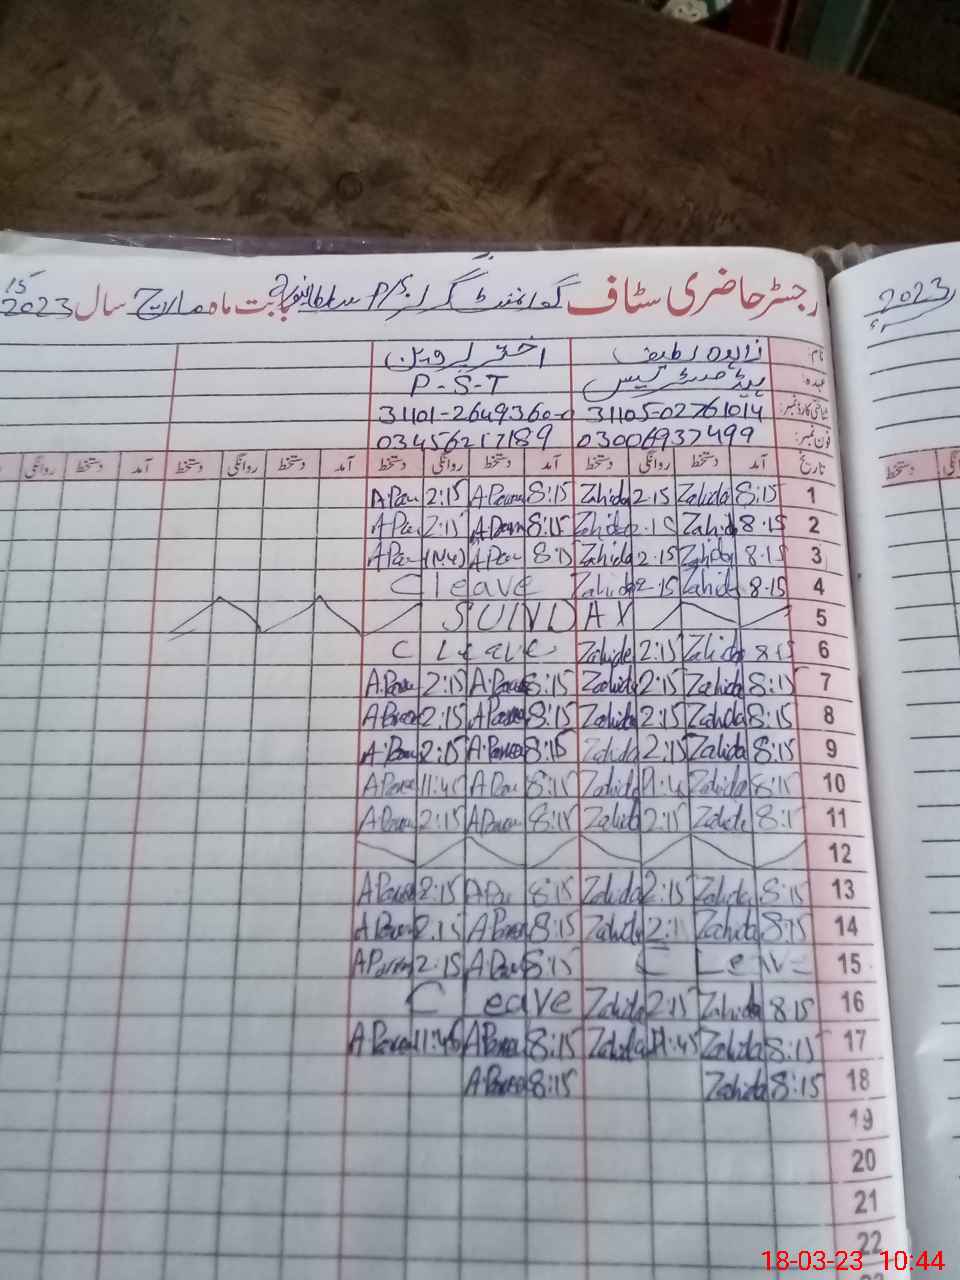 رجسٹر حاضری سٹاف گورنمنٹ گرلز P/S بابت ماہ مارچ سال 2023
2023
نام: زاہدہ لطیف اختر پروین
عہدہ: ہیڈ مسٹریس P-S-T
شناختی کارڈ نمبر: 31105-02761014 31101-2649360-0
فون نمبر: 03006937499 03456217189
تاریخ آمد دستخط روانگی دستخط آمد دستخط روانگی دستخط آمد دستخط روانگی دستخط آمد دستخط روانگی
دستخط
1 8:15 Zahida 2:15 Zahida 8:15 A Parveen 2:15 A Par
2 8:15 Zahida Zahida 8:15 A Parveen 2:15 A Par
3 8:15 Zahida 2:15 Zahida 8:15 A Par A Par
4 8:15 Zahida 2:15 Zahida C leave
5 SUNDAY
6 8:15 Zahida 2:15 Zahida C Leave
7 8:15 Zahida 2:15 Zahida 8:15 A.Parveen 2:15 A.Parveen
8 8:15 Zahida 2:15 Zahida 8:15 A Parveen 2:15 A Parveen
9 8:15 Zahida 2:15 Zahida 8:15 A.Parveen 2:15 A.Parveen
10 8:15 Zahida 11:45 Zahida 8:15 A Par 11:45 A Parveen
11 8:15 Zahida 2:15 Zahida 8:15 A Parveen 2:15 A Parveen
12
13 8:15 Zahida 2:15 Zahida 8:15 A Par 2:15 A Parveen
14 8:15 Zahida 2:15 Zahida 8:15 A Parveen 2:15 A Parveen
15 C Leave 8:15 A Parveen 2:15 A Parveen
16 8:15 Zahida 2:15 Zahida C leave
17 8:15 Zahida 11:45 Zahida 8:15 A Parveen 11:45 A Parveen
18 8:15 Zahida 8:15 A Parveen
19
20
21
22
18-03-23 10:44